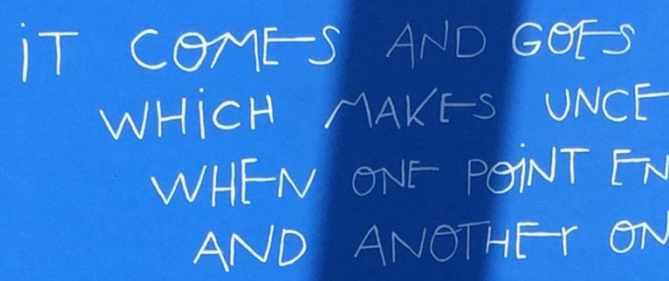 iT COMES AND GOES
WHiCH MAKES UNCE
WHEN ONE POiNT EN
AND ANOTHER ON